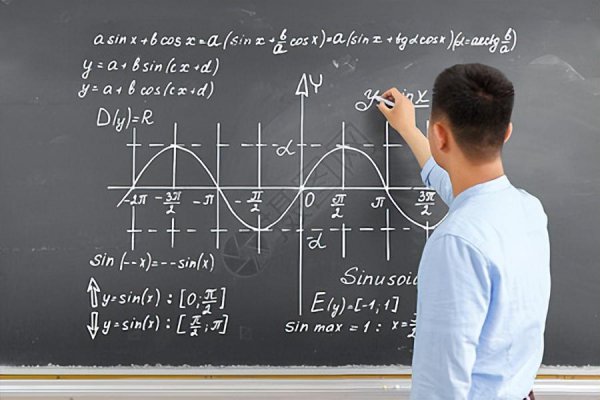 a sin x + b cos x = a (sin x + b/a cos x) = a (sin x + tgα cos x) (α = arctg b/a)
y = a + b sin (cx + d)
y = a + b cos (cx + d)
D(y) = R
Y
α
-2π -3π/2 -π -π/2 0 π/2 π 3π/2
-α
sin (--x) = --sin(x)
⇑ y = sin(x) : [0; π/2]
⇓ y = sin(x) : [π/2; π]
Sinusoi
E(y) = [-1; 1]
sin max = 1 : x =